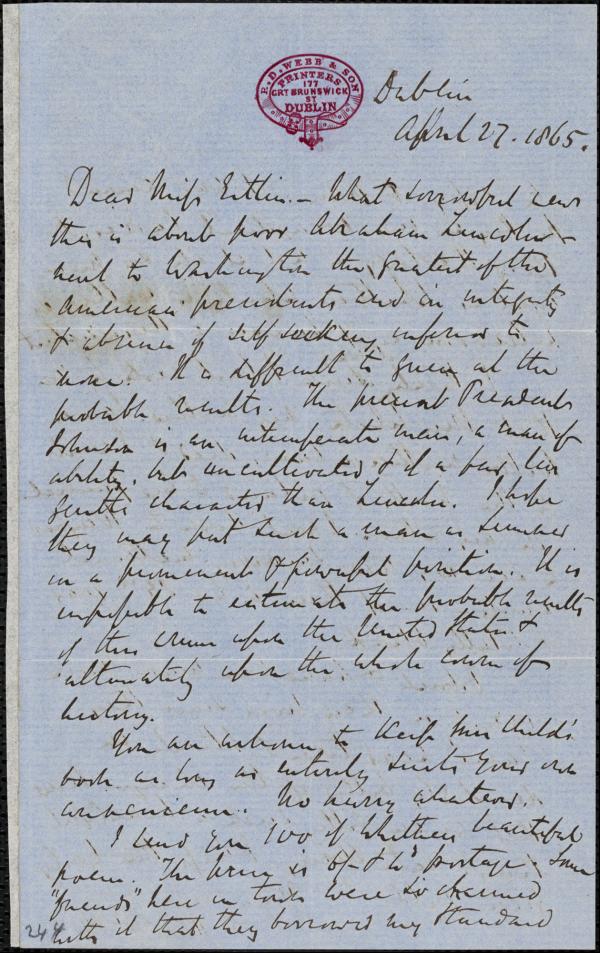 R. D. WEBB & SON
PRINTERS
177
GRT BRUNSWICK
ST
DUBLIN
Dublin
April 27. 1865.
Dear Miss Estlin. - What sorrowful news
this is about poor Abraham Lincoln -
next to Washington the greatest of the
American presidents and in integrity
& absence of self seeking inferior to
none. It is difficult to guess at the
probable results. The present President
Johnson is an intemperate man, a man of
ability, but uncultivated & of a far less
gentle character than Lincoln. I hope
they may put such a man as Sumner
in a prominent & powerful position. It is
impossible to estimate the probable results
of this crime upon the United States &
ultimately upon the whole course of
history.
You are welcome to keep Mrs Child's
book as long as entirely suits your own
convenience. No hurry whatever.
I send you 100 of Whittier's beautiful
poem. The price is 6/- & postage. Some
"friends" here in town were so charmed
with it that they borrowed my Standard
244